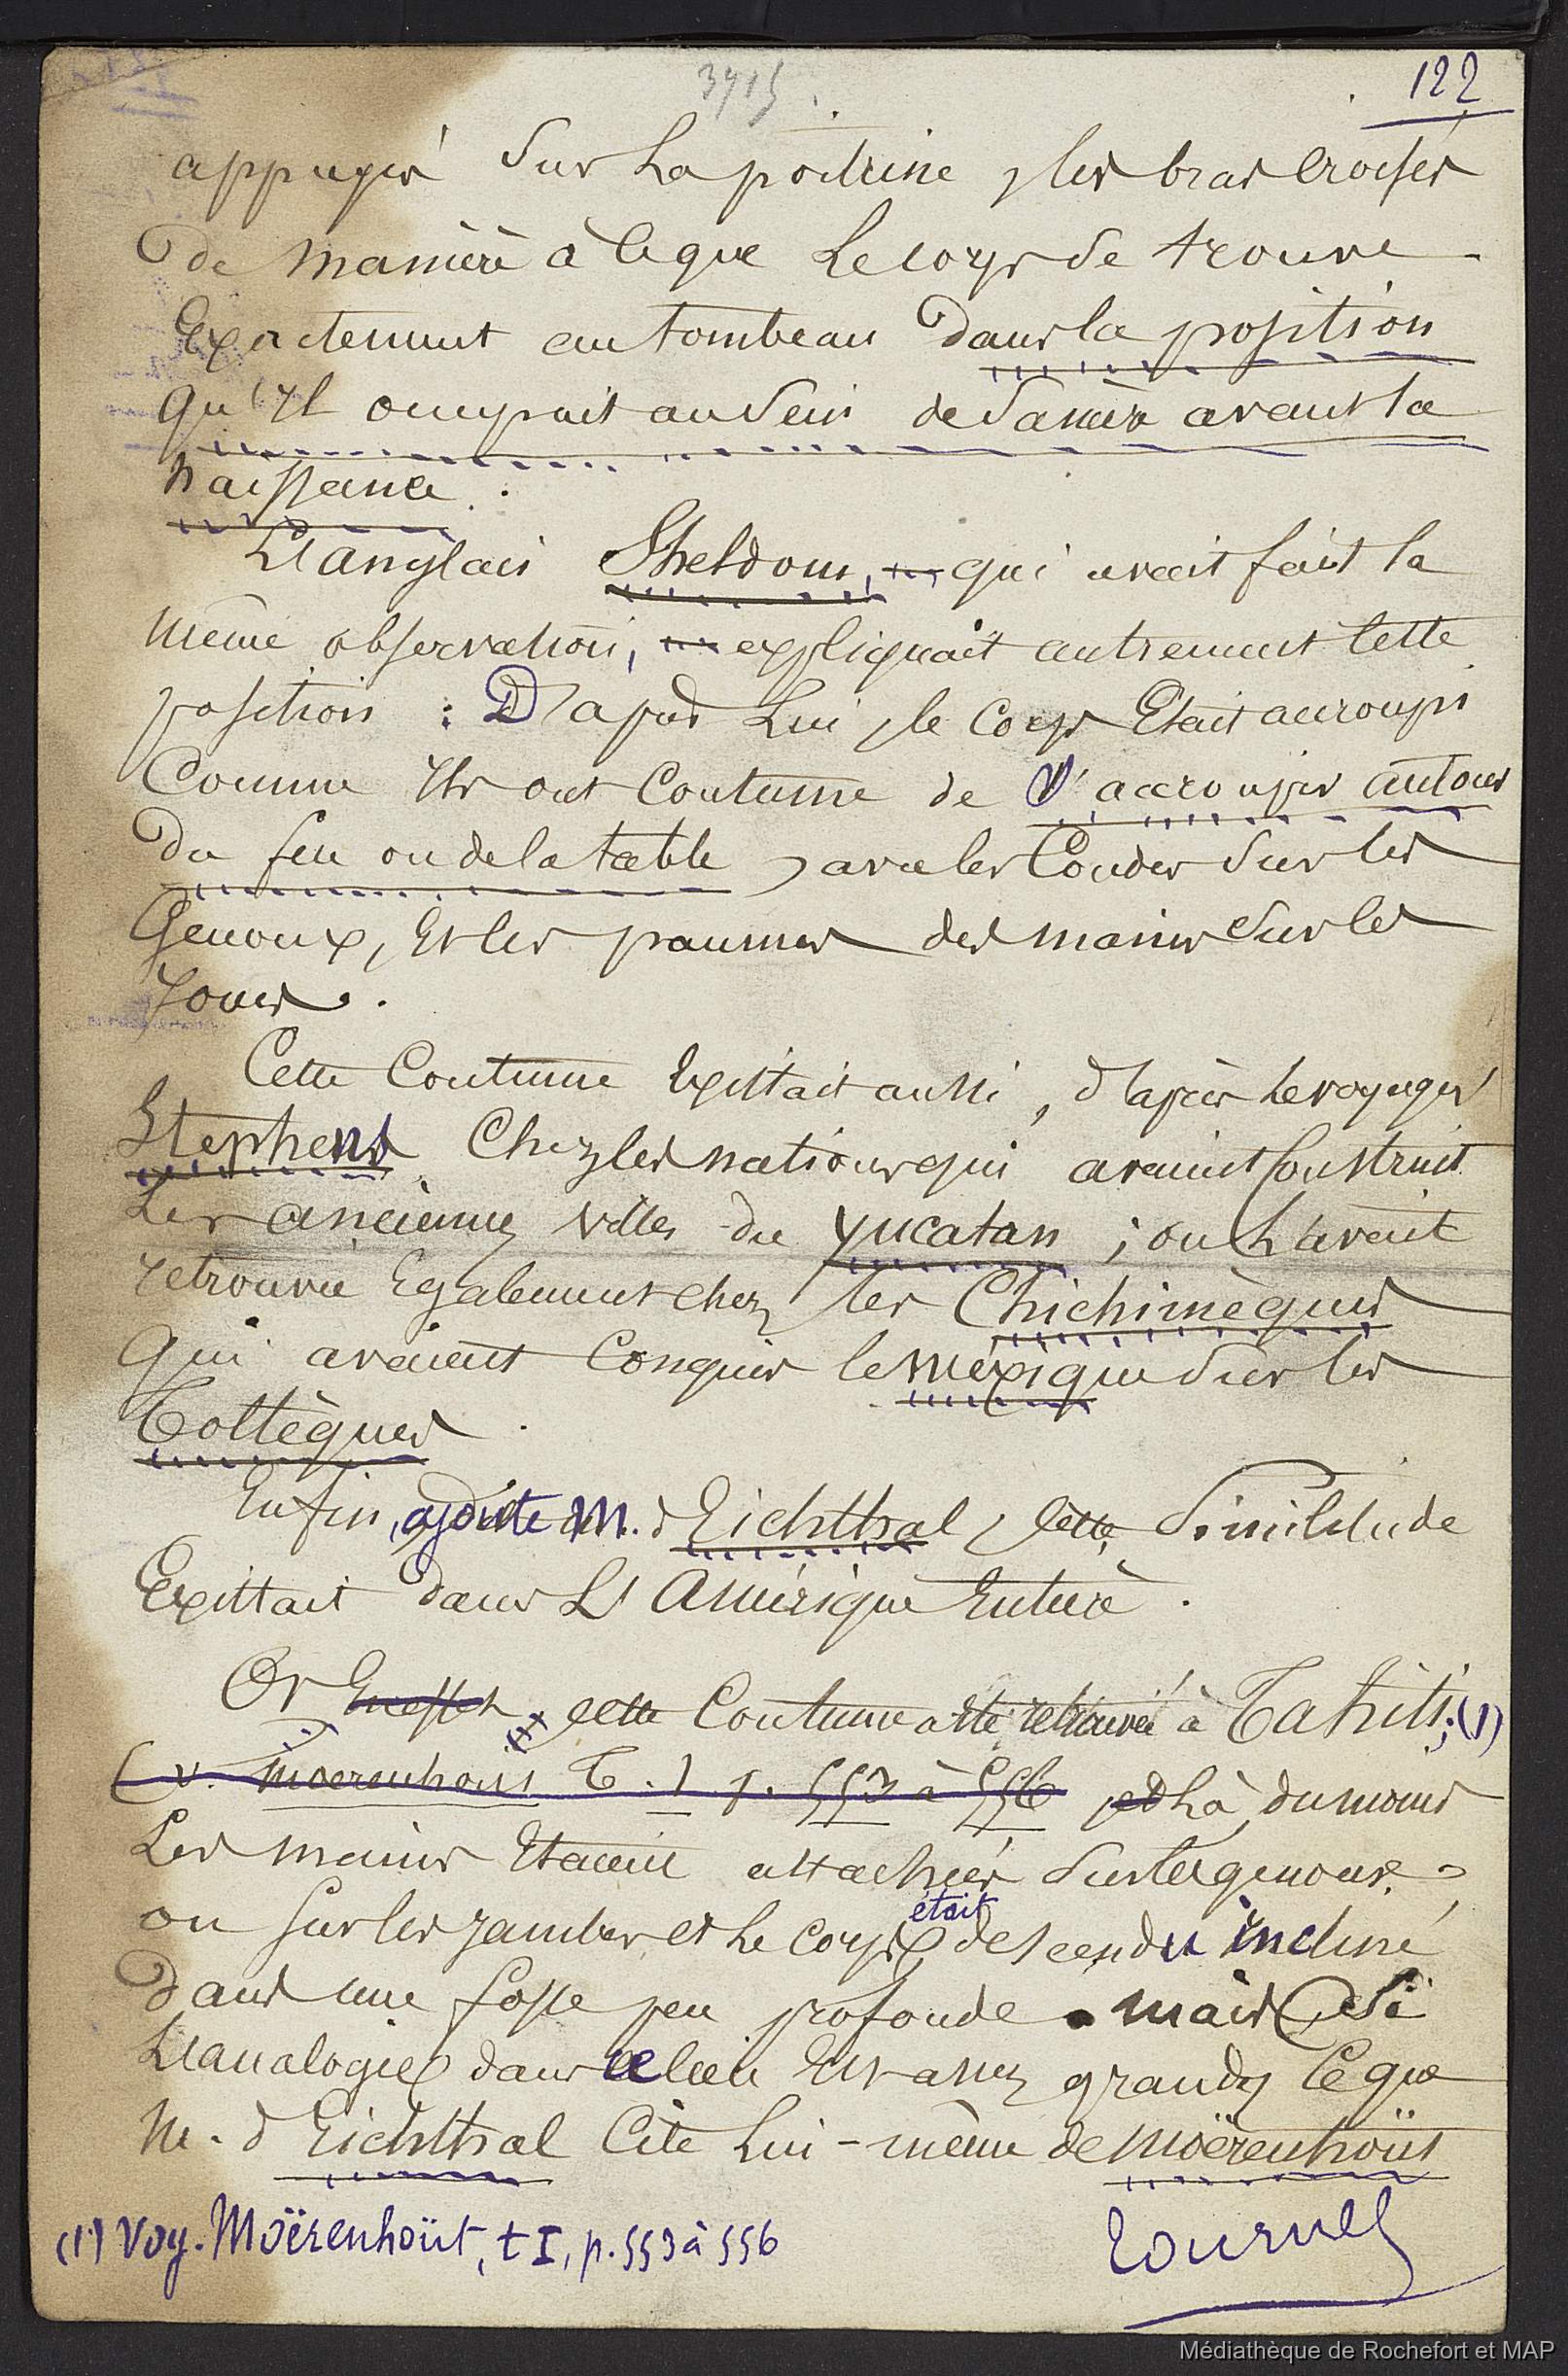 3715
122
appuyés sur la poitrine, les bras croisés
de manière à ce que le corps se trouve
exactement au tombeau dans la position
qu'il occupait au sein de sa mère avant la
naissance.
L'anglais Sheldom, qui avait fait la
même observation, expliquait autrement cette
position : D'après lui, le corps était accroupi
comme ils ont coutume de s'accroupir autour
du feu ou de la table, avec les coudes sur les
genoux, et les paumes des mains sur les
joues.
Cette coutume existait aussi, d'après le voyageur
Stephens chez les nations qui avaient construit
les anciennes villes du yucatan ; on l'avait
retrouvée également chez les Chichimèques
qui avaient conquis le méxique sur les
Toltèques.
Enfin, ajoute M. d'Eichthal, cette similitude
existait dans l'Amérique entière.
Or en effet, cette coutume a été retrouvée à Tahiti; (1)
(v. Moerenhout T. 1 p. 553 à 556 là, du moins
les mains étaient attachées sur les genoux
ou sur les jambes et le corps était descendu incliné
dans une fosse peu profonde. mais si
l'analogie dans ce lieu est assez grande, ce que
M. d'Eichthal cite lui-même de Moërenhoüt
(1) Voy. Moërenhoüt, t I, p. 553 à 556
tournel
Médiathèque de Rochefort et MAP